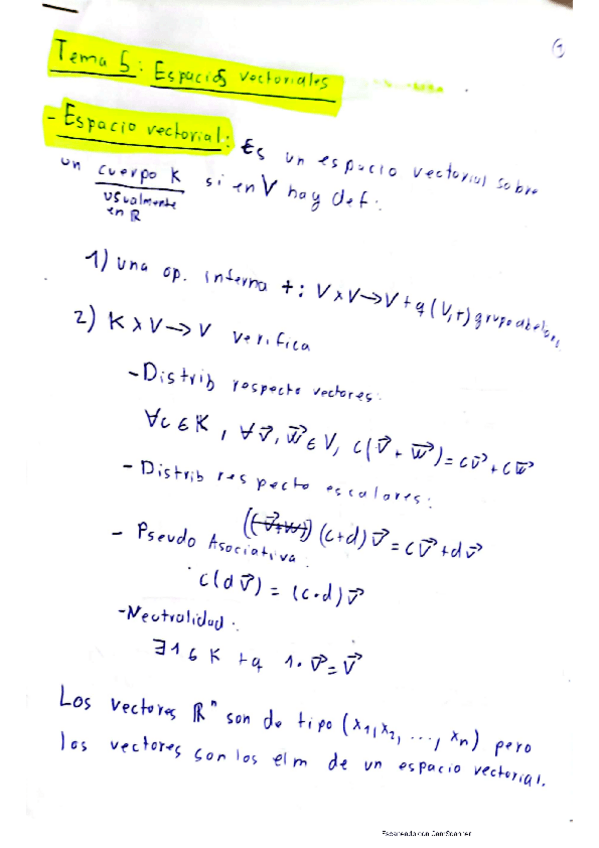 ①
Tema 5: Espacios vectoriales
- Espacio vectorial: Es un espacio vectorial sobre
un cuerpo K si en V hay def:
usualmente
en ℝ
1) una op. interna +: V×V→V tq (V,+) grupo abeliano.
2) K×V→V verifica
- Distrib respecto vectores:
∀c∈K, ∀v⃗,w⃗∈V, c(v⃗+w⃗)=cv⃗+cw⃗
- Distrib respecto escalares:
(c+d)v⃗=cv⃗+dv⃗
- Pseudo Asociativa:
c(dv⃗) = (c·d)v⃗
- Neutralidad:
∃1∈K tq 1·v⃗=v⃗
Los vectores ℝⁿ son de tipo (x₁,x₂, ..., xₙ) pero
los vectores son los elm de un espacio vectorial.
Escaneado con CamScanner